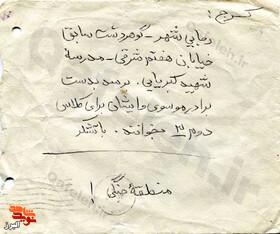 کرج:
رجایی شهر - گوهردشت سابق
خیابان هفتم شرقی - مدرسه
شهید کبریایی. برسد بدست
برادر موسوی و ایشان برای کلاس
دوم ۳ بخوانند. باتشکر
منطقه جنگی!